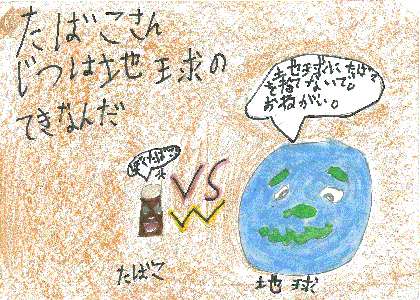 たばこさん
じつは地球の
てきなんだ
地球にたばこ
を捨てないで。
おねがい。
VS
たばこ
地球